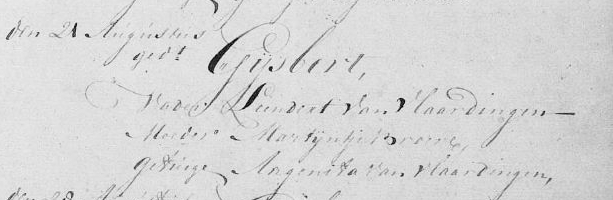 den 21 Augustus
ged.t Gijsbert,
Vader Leendert van Vlaardingen
Moeder Martijntje
Getuige van Vlaardingen,